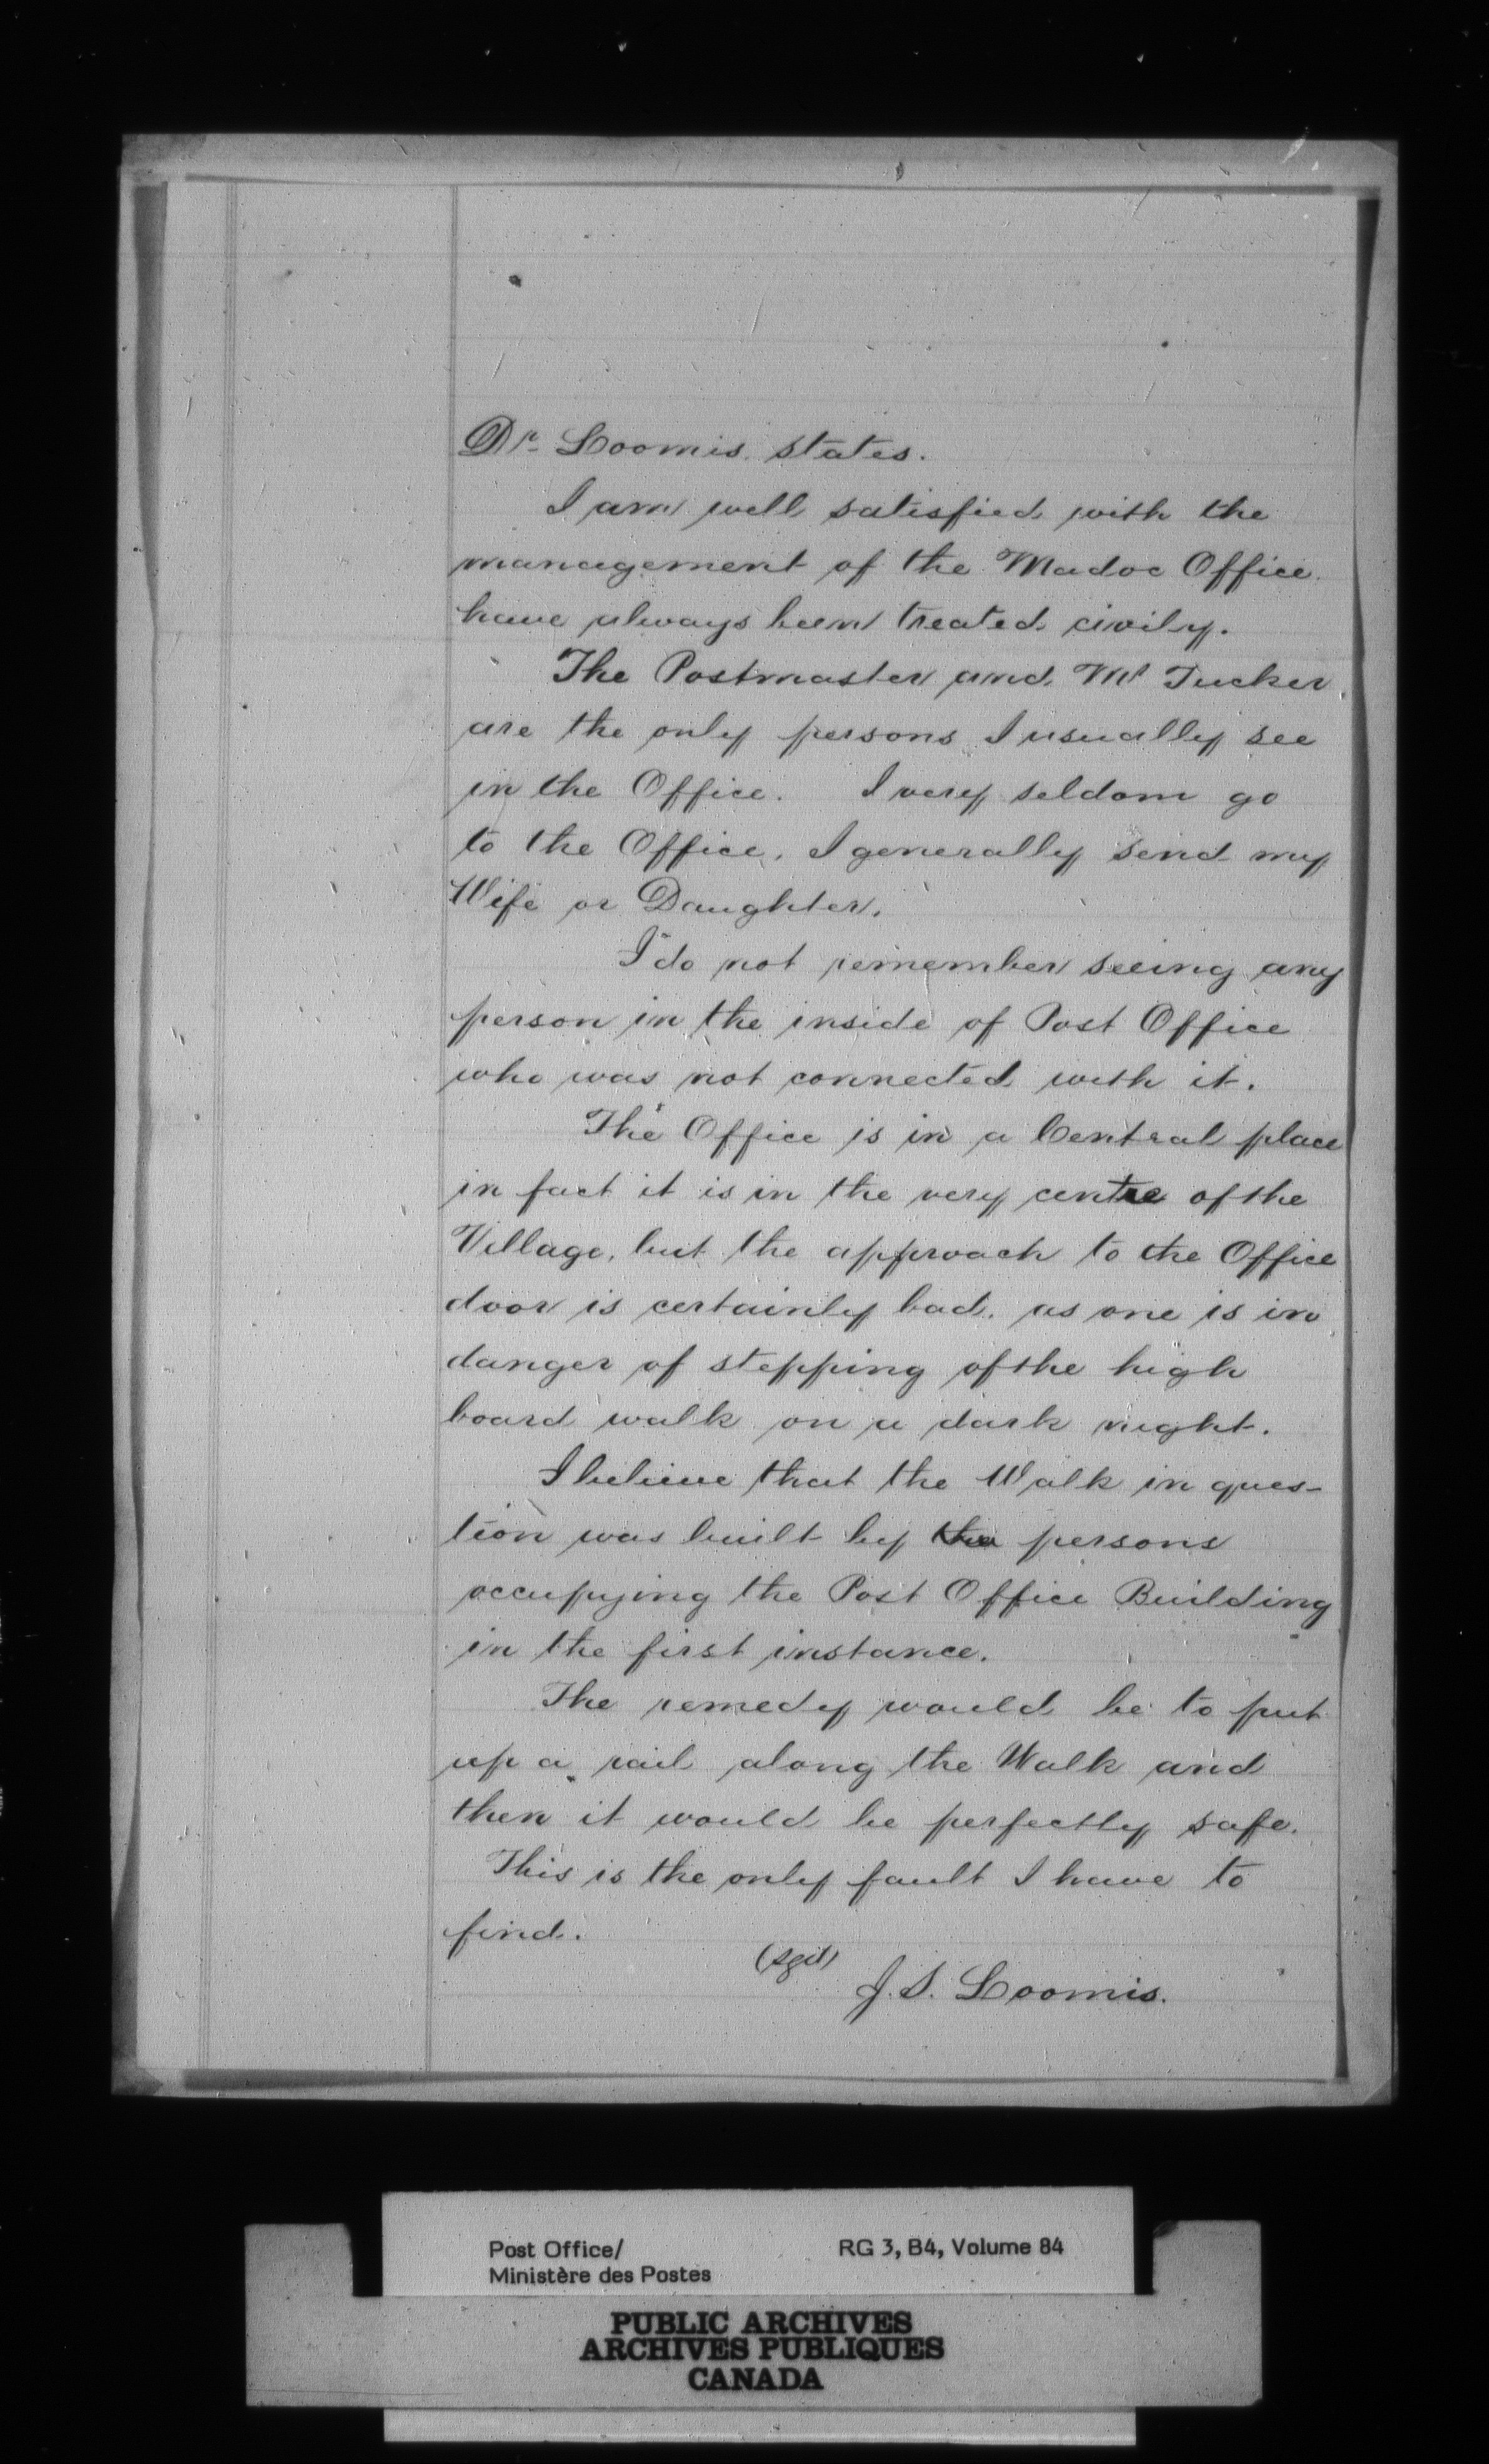 Dr. Loomis states.
I am well satisfied with the
management of the Madoc Office.
have always been treated civily.
The Postmaster and Mr Tucker
are the only persons I usually see
in the Office. I very seldom go
to the Office, I generally send my
Wife or Daughter.
I do not remember seeing any
person in the inside of Post Office
who was not connected with it.
The Office is in a Central place
in fact it is in the very centre of the
Village, but the approach to the Office
door is certainly bad. as one is in
danger of stepping of the high
board walk on a dark night.
I believe that the Walk in ques-
tion was built by the persons
occupying the Post Office Building
in the first instance.
The remedy would be to put
up a rail along the Walk and
then it would be perfectly safe.
This is the only fault I have to
find.
(sgd)
J. S. Loomis.
Post Office/ RG 3, B4, Volume 84
Ministère des Postes
PUBLIC ARCHIVES
ARCHIVES PUBLIQUES
CANADA